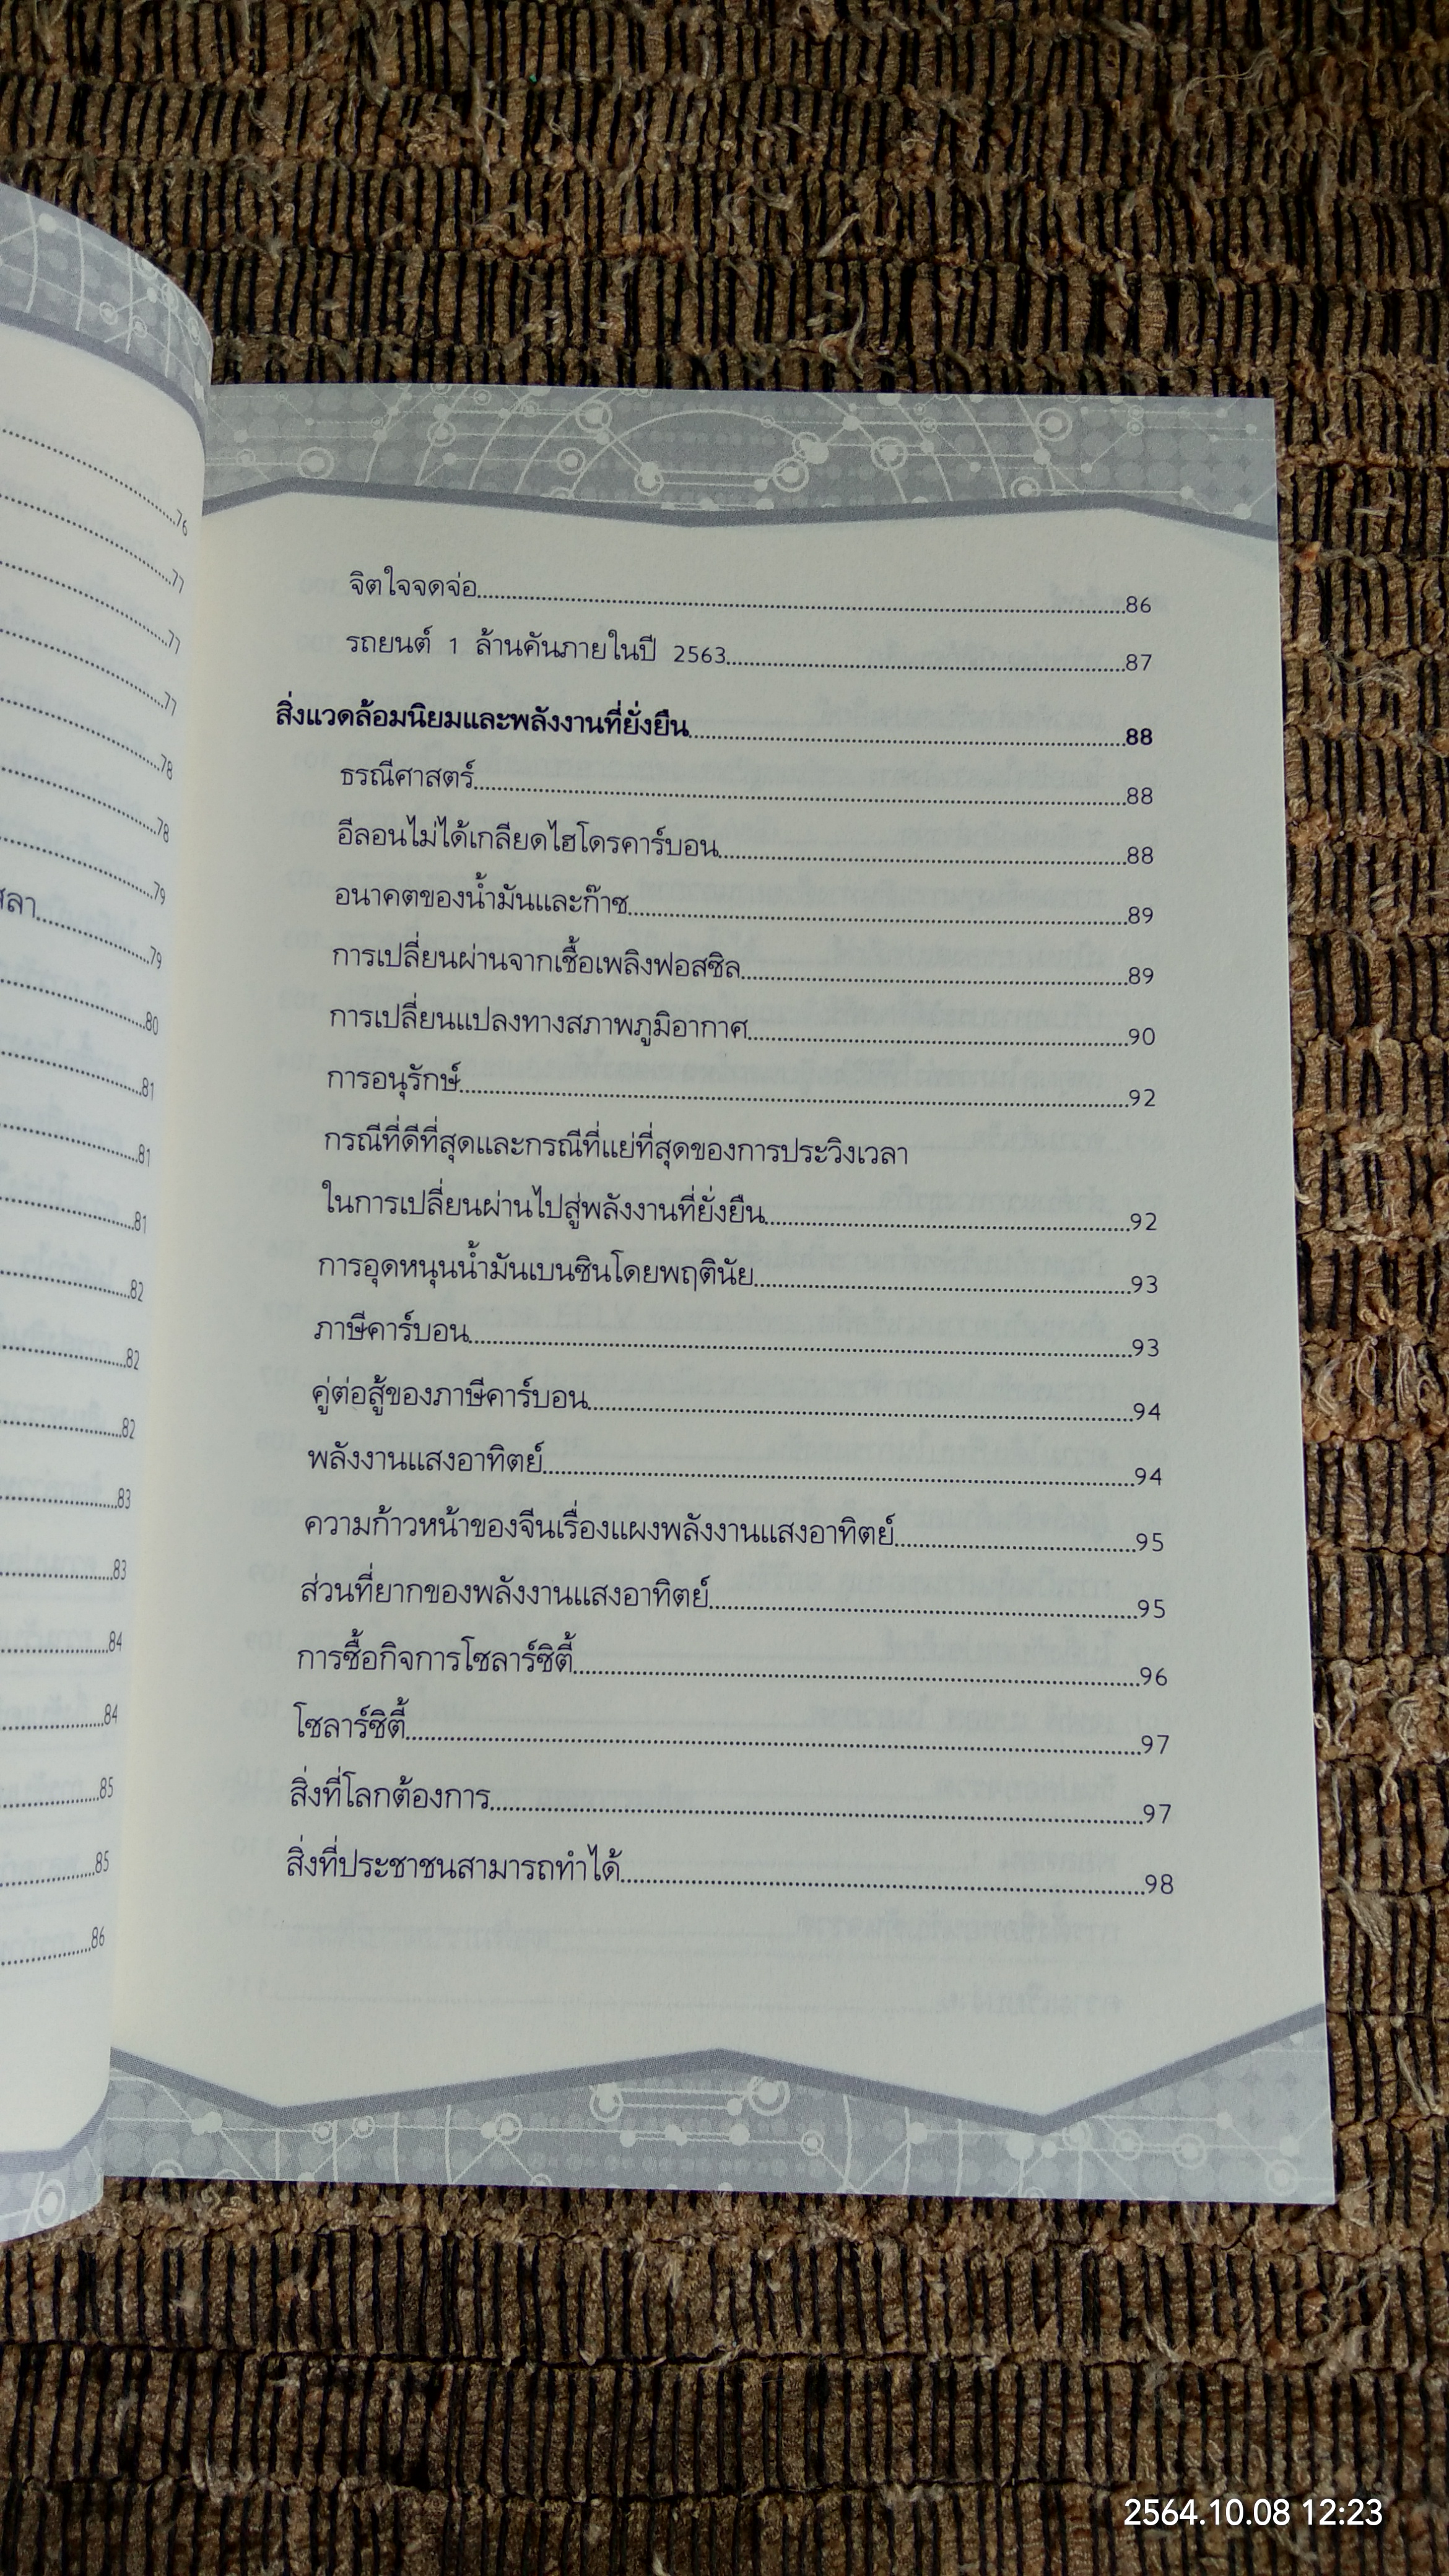 76
77
77
77
78
78
79
สลา 79
80
81
81
81
82
82
82
83
83
84
84
85
85
86
จิตใจจดจ่อ 86
รถยนต์ 1 ล้านคันภายในปี 2563 87
สิ่งแวดล้อมนิยมและพลังงานที่ยั่งยืน 88
ธรณีศาสตร์ 88
อีลอนไม่ได้เกลียดไฮโดรคาร์บอน 88
อนาคตของน้ำมันและก๊าซ 89
การเปลี่ยนผ่านจากเชื้อเพลิงฟอสซิล 89
การเปลี่ยนแปลงทางสภาพภูมิอากาศ 90
การอนุรักษ์ 92
กรณีที่ดีที่สุดและกรณีที่แย่ที่สุดของการประวิงเวลา
ในการเปลี่ยนผ่านไปสู่พลังงานที่ยั่งยืน 92
การอุดหนุนน้ำมันเบนซินโดยพฤตินัย 93
ภาษีคาร์บอน 93
คู่ต่อสู้ของภาษีคาร์บอน 94
พลังงานแสงอาทิตย์ 94
ความก้าวหน้าของจีนเรื่องแผงพลังงานแสงอาทิตย์ 95
ส่วนที่ยากของพลังงานแสงอาทิตย์ 95
การซื้อกิจการโซลาร์ซิตี้ 96
โซลาร์ซิตี้ 97
สิ่งที่โลกต้องการ 97
สิ่งที่ประชาชนสามารถทำได้ 98
2564.10.08 12:23